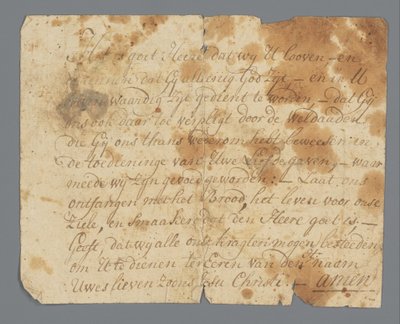 Het is goet Heere dat wy U Looven - en
kennen dat Gy alleenig God Zyt - en in U
waardig Zyt gedient te worden, - dat Gy
ons ook daar toe verpligt door de Weldaaden
die Gy ons thans wederom hebt beweesen in
de toedieninge van Uwe Liefdegaven, - waar
meede wy Zyn gevoed geworden: - Laat ons
ontfangen met het Brood, het leven voor onse
Ziele, en Smaaken dat den Heere goet is -
Geeft, dat wy alle onse kragten mogen besteeden
om U te dienen ter Eeren van den naam
Uwes lieven Zoons Jesu Christi. - amen